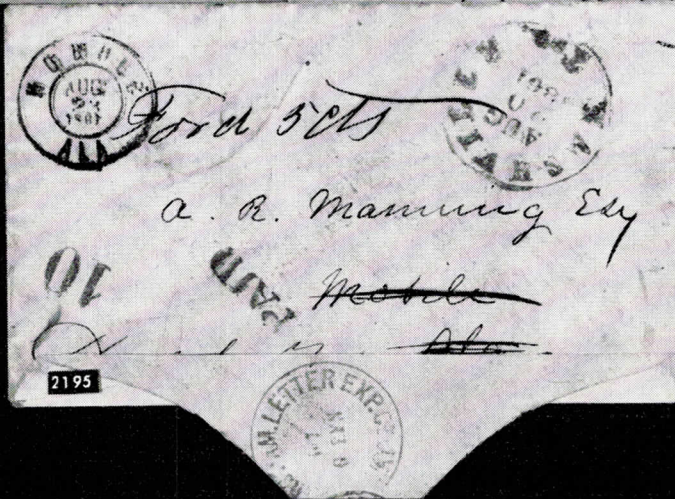 MOBILE
AUG
1861
ALA
NASHVILLE
AUG
20
1861
Ford 5cts
A. R. Manning Esq
10
PAID
Mobile
Ala.
2195
AM. LETTER EXP. CO.